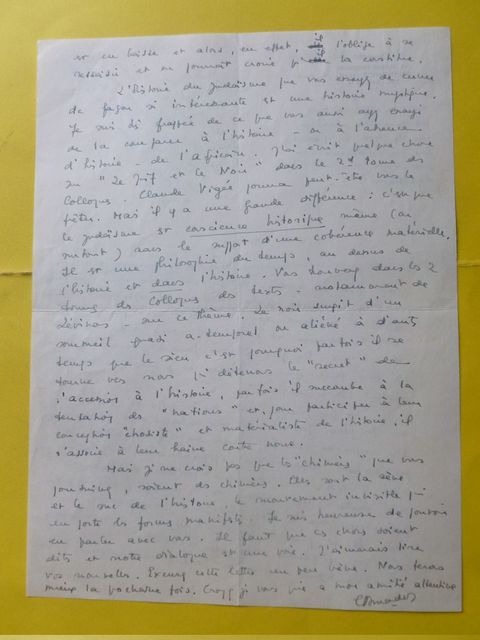 est en baisse et alors, en effet, il l'oblige à se
et ne pourrait croire qu'il la constitue.
L'histoire du judaïsme que vous essayez de cerner
de façon si intéressante est une histoire mystique.
Je suis très frappée de ce que vous ayez aussi
de la confiance à l'histoire - ou à l'absence
d'histoire - de l'africain. J'ai écrit quelque chose
sur "Le Juif et le Noir" dans le 2nd tome des
Colloques. Claude Vigée pourra peut-être vous le
prêter. Mais il y a une grande différence : c'est que
le judaïsme est conscience historique même (ou
surtout) sans le support d'une cohérence matérielle.
Il est une philosophie du temps, au dessus de
l'histoire et dans l'histoire. Vous trouverez dans les 2
tomes des Colloques des textes - notamment de
Lévinas - sur ce thème. Le noir surgit d'un
sommeil quasi a-temporel ou aliéné à d'autres
temps que le sien c'est pourquoi parfois il se
tourne vers nous qui détenons le "secret" de
l'accession à l'histoire, parfois il succombe à la
tentation des "nations" et, pour participer à leur
conception "chosiste" et matérialiste de l'histoire, il
s'associe à leur haine contre nous.
Mais je ne crois pas que les "chimères" que vous
poursuivez, soient des chimères. Elles sont la sève
et le suc de l'histoire, le mouvement invisible qui
en porte les formes manifestes. Je suis heureuse de pouvoir
en parler avec vous. Il faut que ces choses soient
dites et notre dialogue est une voie. J'aimerais lire
vos nouvelles. Excusez cette lettre un peu brève. Nous ferons
mieux la prochaine fois. Croyez je vous prie à mon amitié attentive